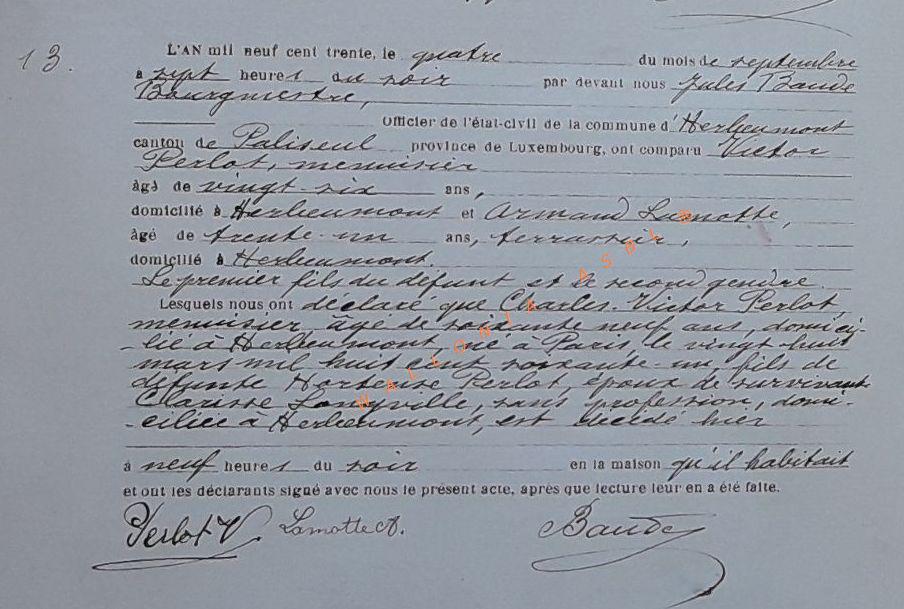 13.
L'AN mil neuf cent trente, le quatre du mois de septembre
à sept heures du soir par devant nous Jules Baude
Bourgmestre,
Officier de l'état-civil de la commune d'Herbeumont
canton de Paliseul province de Luxembourg, ont comparu Victor
Perlot, menuisier
âgé de vingt-six ans,
domicilié à Herbeumont et Armand Lamotte,
âgé de trente-un ans, terrassier,
domicilié à Herbeumont.
Le premier fils du défunt et le second gendre.
Lesquels nous ont déclaré que Charles-Victor Perlot,
menuisier, âgé de soixante neuf ans, domici-
-lié à Herbeumont, né à Paris le vingt-huit
mars mil huit cent soixante-un, fils de
défunte Hortense Perlot, époux de survivante
Clarisse Longville, sans profession, domi-
-ciliée à Herbeumont, est décédé hier
à neuf heures du soir en la maison qu'il habitait
et ont les déclarants signé avec nous le présent acte, après que lecture leur en a été faite.
Perlot V. Lamotte A. Baude
WALLONIA ASBL